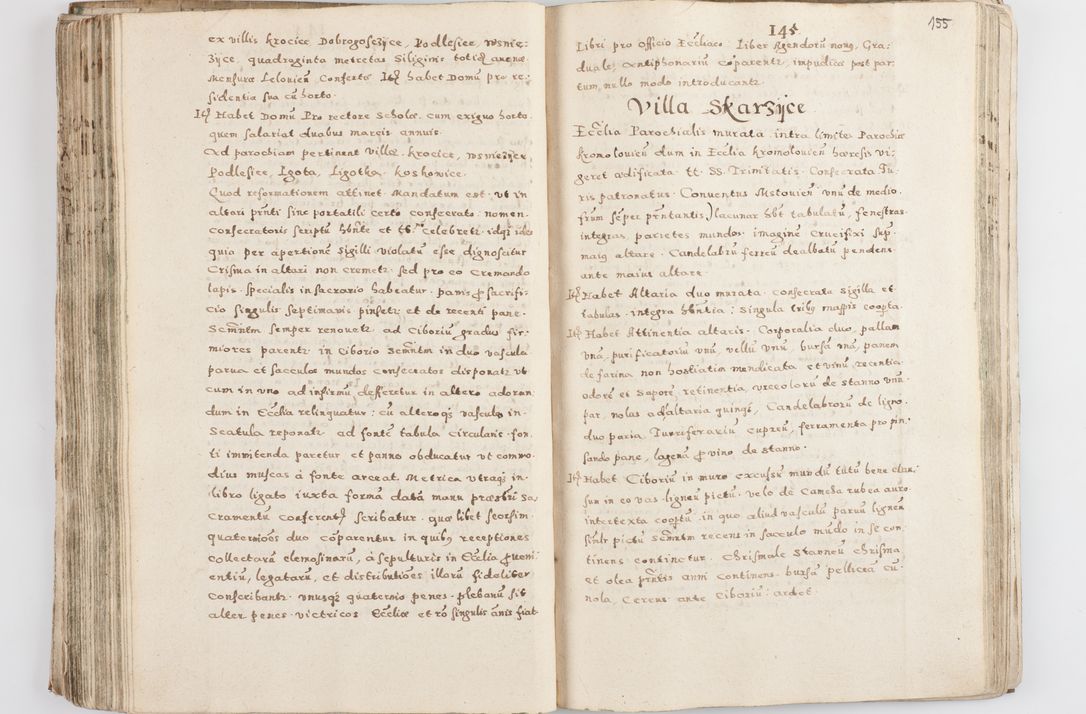 ex villis krocice Dobrogoszijce, Podlesice, wsnie:
zijce, quadroginta metretas Siliginis totiq avenæ
Mensura Lelovien Conferto Itq habet Domũ pro re:
sidentia sua cũ horto.
Itq Habet Domũ Pro rectore Scholæ cum exiguo horto
quem salariat duobus marcis annuis.
Ad parochiam pertinent villæ. krocice, wsniezijce
Podlesice, Lgota, Lgotka koskowice.
Quod reformationem attinet Mandatum est ut in
altari prñti sine portatili certo consecrato nomen
Consecratoris scriptũ hbñte et Celebretr idqz ideo
quia per apertione Sigilli violatũ esse dignoscitur
Crisma in altari non cremetr sed pro eo Cremando
lapis specialis in sacrario habeatur. panis p sacrifi:
cio singulis septimanis pinsetr et de recenti pane.
Scmñtm semper renovetr ad Ciboriũ gradus fir:
miores parentr in Ciborio Scmñtm in duo vascula
parva et sacculos mundos consecratos disponatr ut
cum in uno ad infirmũ defferetur in altero adoran:
dum in Ecclia relinquatur: cũ altero qs vasculo in
scatula reponatr ad fontẽ tabula circularis fon:
ti imvitenda paretur et panno obducatur ut commo:
dius muscas à fonte arceat Metrica utraqz in
libro ligato iuxta formã datã manu præsbri Sa:
cramentũ conferentis scribatur quælibet seorsim
quaterniões duo cõparentur in quibus receptiones
collectarũ elemosinarũ, à sepulturis in Ecclia pveni:
entiũ, legatarũ, et distributiões illorũ fideliter
Conscribantr unusqz quaternio penes plebanũ sit
alter penes victricos Eccliæ et rõ singulis ãnis fiat
145
155
Libri pro Officio Eccliaco Liber Agendorũ novus, Gra:
duale, Antiphonariũ cõparentr, impudicæ post par:
tum, nullo modo introducantr
Villa Skarzijce
Ecclia Parochialis murata intra limites Parochiæ
kromolovien dum in Ecclia kromolovien hæresis vi:
geret ædificata tt SS. Trinitatis Consecrata Iu:
ris patronatus Conventus Mstovien unũ de medio
frum sẽper prñtantis) lacunar hbt tabulatũ, fenestras
integras, parietes mundos imaginẽ Crucifixi sup
maius altare. Candelabrũ ferreũ dealbatũ pendens
ante maius altare
Itq Habet Altaria duo murata consecrata sigilla et
tabulas integra hbñtia: singula tribus mappis coopta
Itq Habet Attinentia altaris Corporalia duo, pallam
unã, purificatoriũ unũ, vellũ unũ, bursã unã, panem
de farina non hostiatim mendicata et vinũ recentia
odorẽ et saporẽ retinentia, urceolorũ de stanno unũ
par, nolas ad altaria quinqz, Candelabrorũ de ligno
duo paria Turriferariũ cupreũ, ferramenta pro pin:
sando pane, lagenã p vino de stanno.
Itq Habet Ciboriũ in muro excussũ mundũ tutũ bene clau:
sum in eo vas ligneũ pictũ velo de Camcha rubea auro
intertexta cooptũ in quo aliud vasculũ parvũ ligneũ
silr pictũ Scmñtm recens in sacculo mũdo in se con:
tinens continetur. Chrismale Stanneũ chrisma
et olea prñtis anni continens. bursã pelliceã cũ
nola, Cereus ante Ciboriũ ardet.